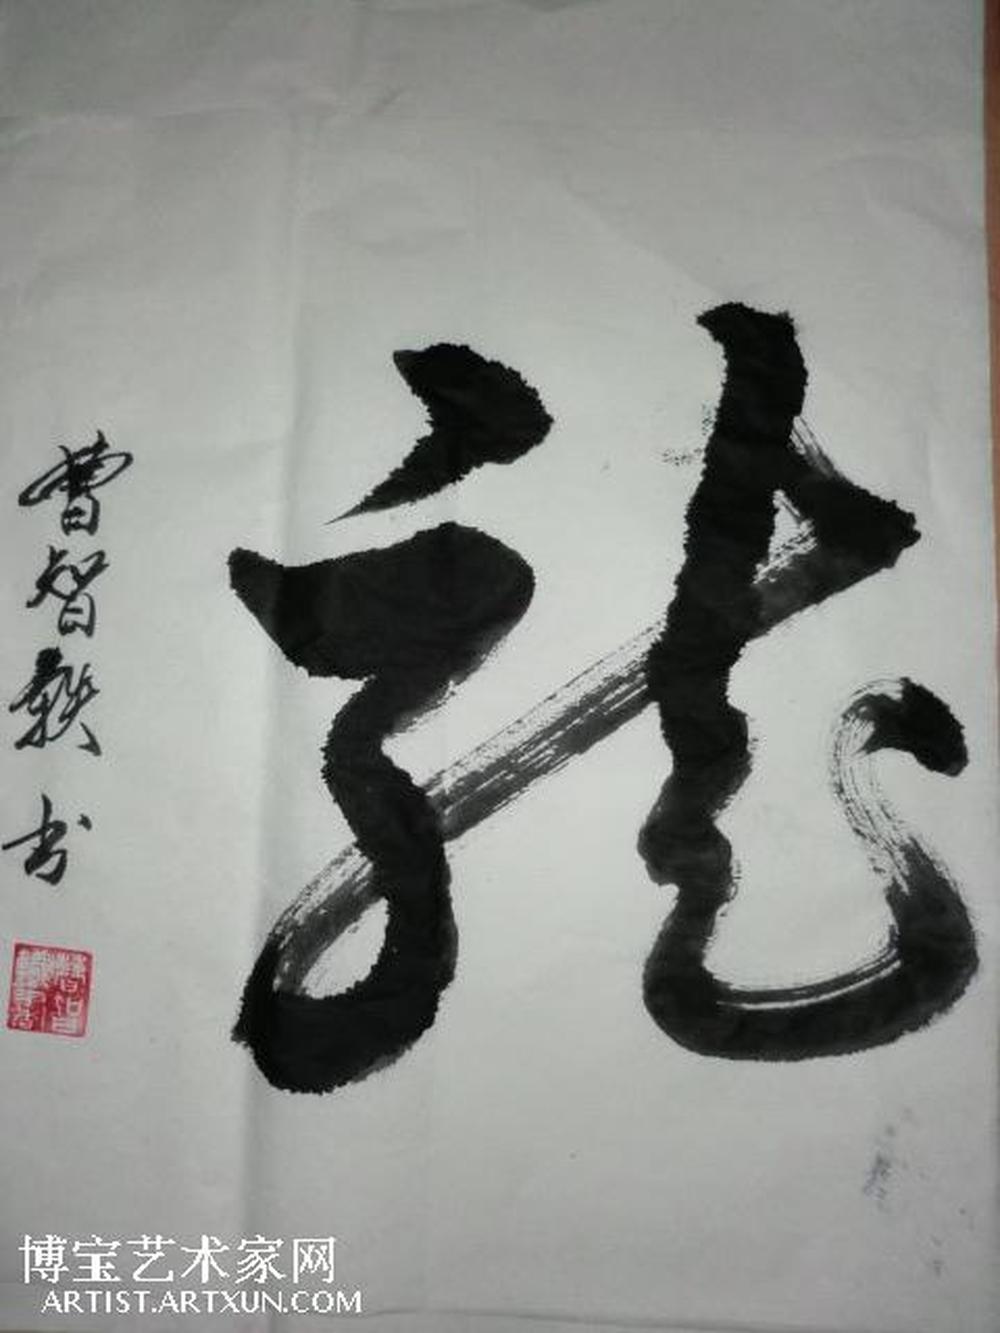 龍
曹智㪨书
博宝艺术家网
ARTIST.ARTXUN.COM